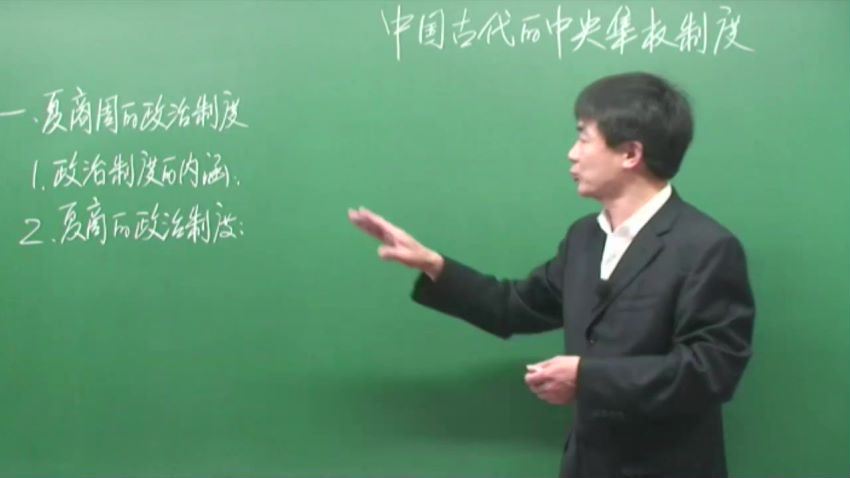 中国古代的中央集权制度
一、夏商周的政治制度
1.政治制度的内涵.
2.夏商的政治制度: